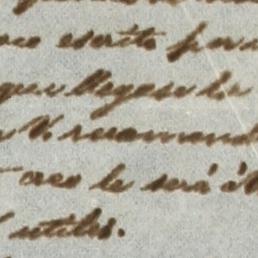 escrito para
que llegase la
V. recomend
creo le será á V
utiles.